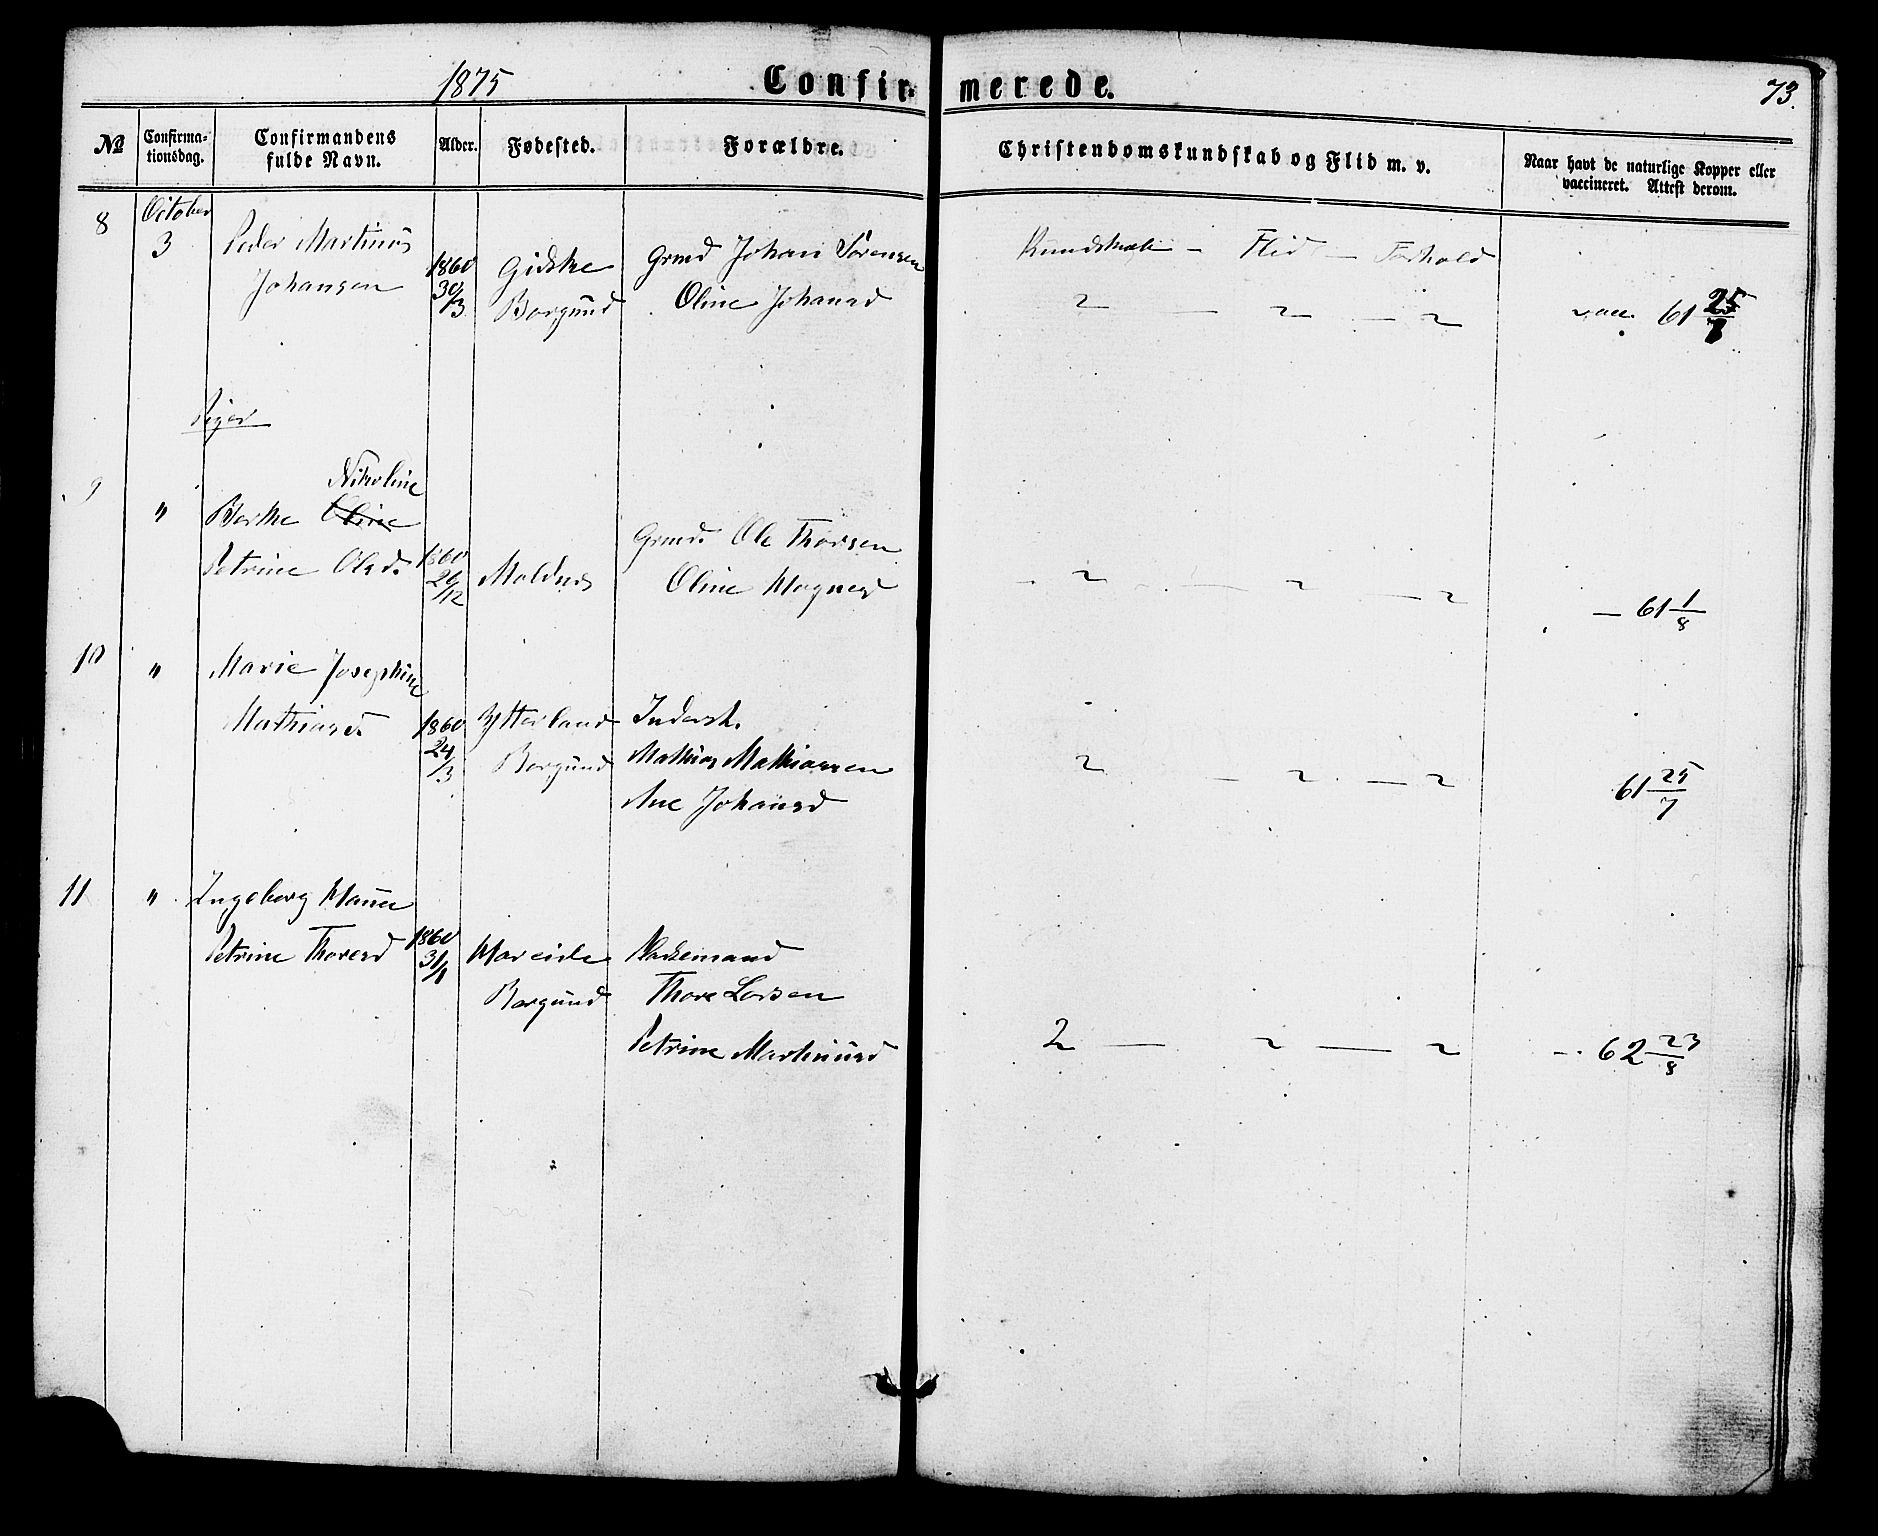 1875 Confirmerede. 73.
№ Confirmationsdag. Confirmandens fulde Navn. Alder. Fødested. Forældre. Christendomskundskab og Flid m. v. Naar havt de naturlige Kopper eller vaccineret. Attest derom.
8 October Peder Martinus Grmd Johan Sørensen Kundskab – Flid – Forhold
3 Johansen 1860 30/3 Gidske Borgund Oline Johansd 2 – 2 – 2 vacc. 61 25/7
Piger
9 Nikoline
" Berthe Oline Grmd. Ole Thorsen
Petrine Olsd. 1860 26/12 Moldnes Oline Magnesd – 2 – 2 – 2 – 61 1/8
10 " Marie Josephine
Mathiasd. 1860 24/3 Ytterland Inderst.
Borgund Mathias Mathiassen 2 – 2 – 2 61 25/7
Ane Johansd
11 " Ingeborg Hanna
Petrine Thoresd 1860 31/1 Hareide
Borgund Thore Larsen
Petrine Martinusd 2 – 2 – 2 – 62 23/8